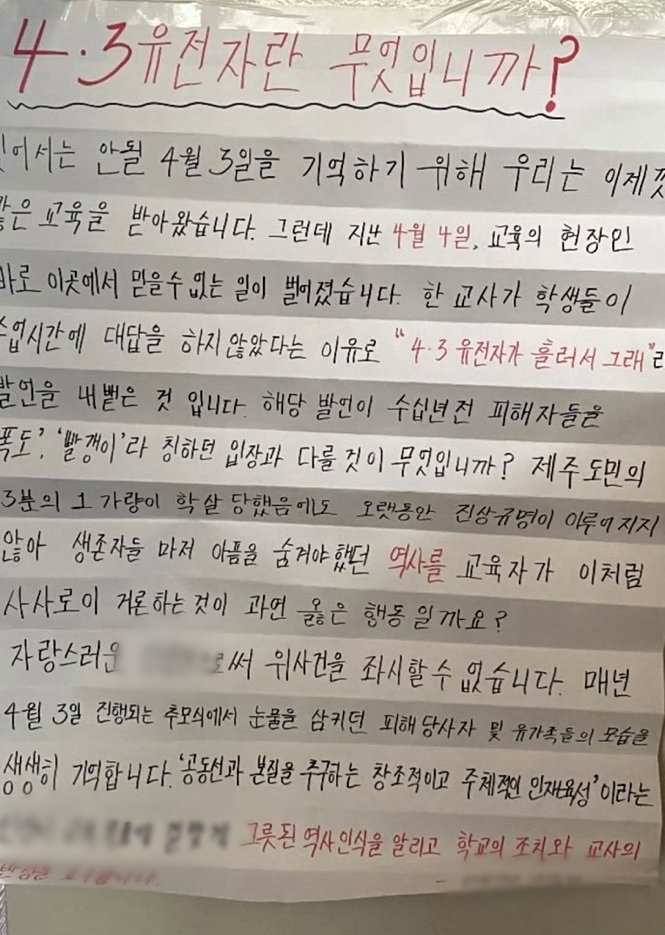 4·3유전자란 무엇입니까?
어서는 안될 4월 3일을 기억하기 위해 우리는 이제껏
많은 교육을 받아왔습니다. 그런데 지난 4월 4일, 교육의 현장인
바로 이곳에서 믿을수 없는 일이 벌어졌습니다. 한 교사가 학생들이
수업시간에 대답을 하지않았다는 이유로 "4·3 유전자가 흘러서 그래"라
발언을 내뱉은 것 입니다. 해당 발언이 수십년전 피해자들을
폭도', '빨갱이'라 칭하던 입장과 다를것이 무엇입니까? 제주도민의
3분의 1 가량이 학살 당했음에도 오랫동안 진상규명이 이루어지지
않아 생존자들 마저 아픔을 숨겨야했던 역사를 교육자가 이처럼
사사로이 거론하는것이 과연 옳은 행동 일까요?
자랑스러운 로써 위사건을 좌시할 수 없습니다. 매년
4월 3일 진행되는 추모식에서 눈물을 삼키던 피해당사자 및 유가족들의 모습을
생생히 기억합니다. '공동선과 본질을 추구하는 창조적이고 주체적인 인재육성'이라는
그릇된 역사인식을 알리고 학교의 조치와 교사의